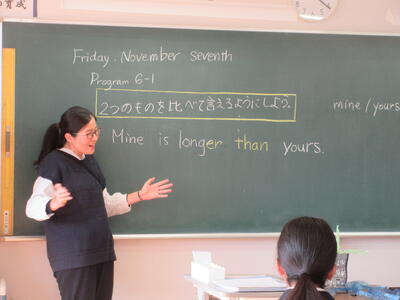 育成
Friday. November seventh
Program 6-1
2つのものを比べて言えるようにしよう。
mine / yours
Mine is longer than yours.